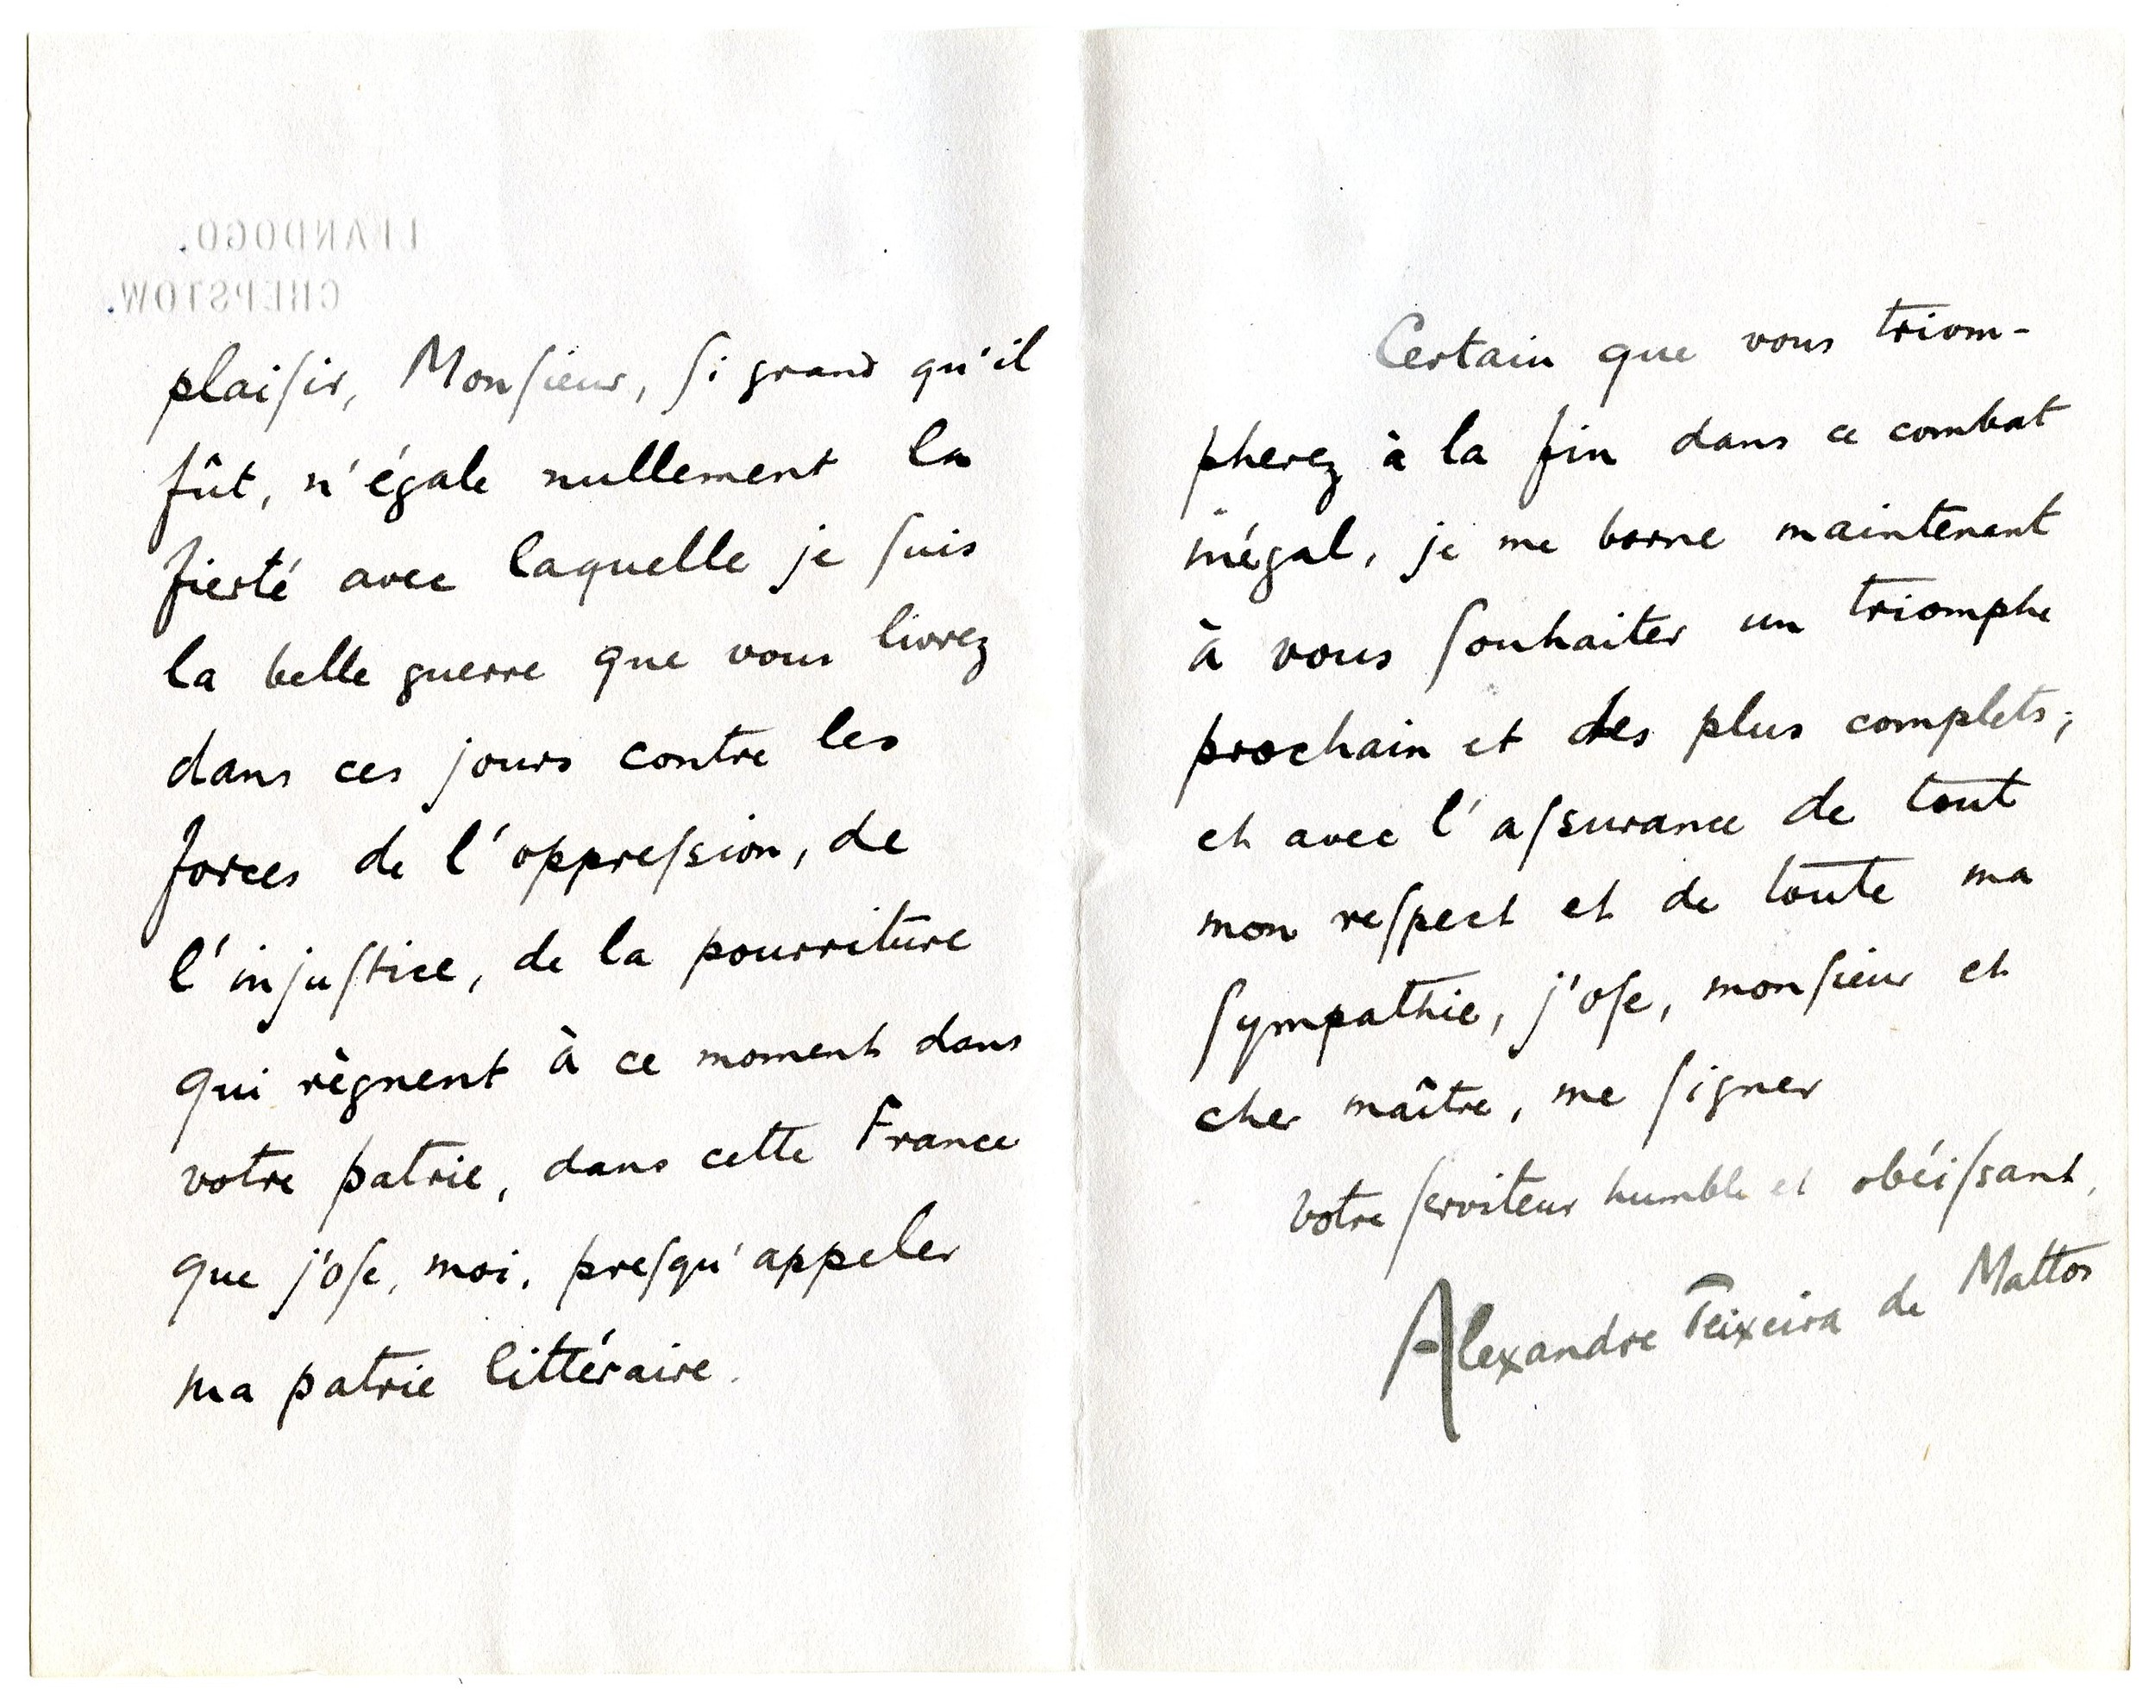 LLANDOGO.
CHEPSTOW.
plaiſir, Monſieur, ſi grand qu'il
fût, n'égale nullement la
fierté avec laquelle je ſuis
la belle guerre que vous livrez
dans ces jours contre les
forces de l'oppreſsion, de
l'injuſtice, de la pourriture
qui règnent à ce moment dans
votre patrie, dans cette France
que j'oſe, moi, preſqu'appeler
ma patrie littéraire.
Certain que vous triom-
pherez à la fin dans ce combat
inégal, je me borne maintenant
à vous ſouhaiter un triomphe
prochain et des plus complets;
et avec l'aſsurance de tout
mon reſpect et de toute ma
ſympathie, j'oſe, monſieur et
cher maître, me ſigner
votre ſerviteur humble et obéiſsant,
Alexandre Teixeira de Mattos